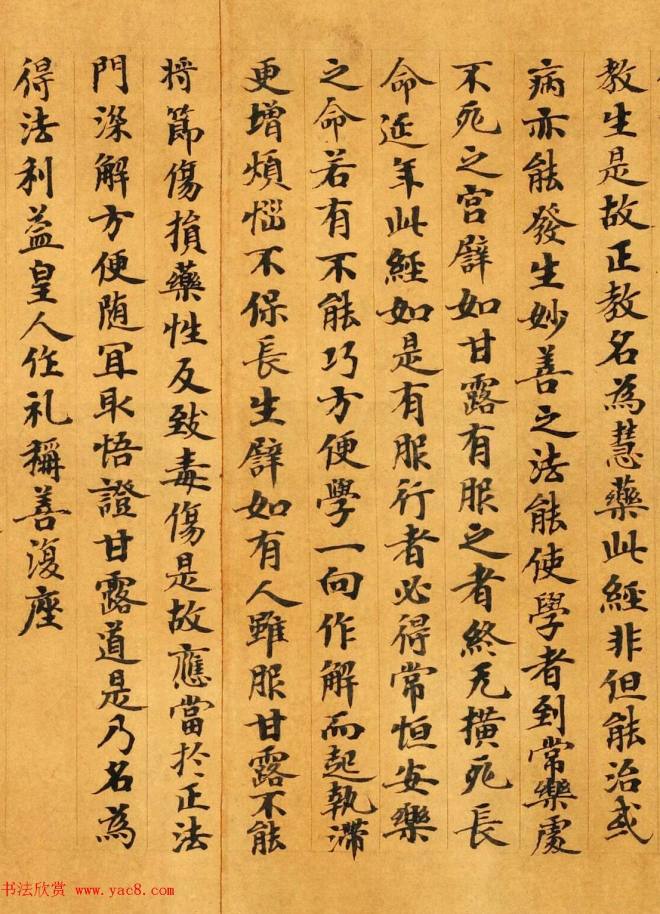 教生是故正教名為慧藥此經非但能治或
病亦能發生妙善之法能使學者到常樂處
不死之宮譬如甘露有服之者終无橫死長
命延年此經如是有服行者必得常恒安樂
之命若有不能巧方便學一向作解而起執滯
更增煩惱不保長生譬如有人雖服甘露不能
将節傷損藥性反致毒傷是故應當於正法
門深解方便随宜取悟證甘露道是乃名為
得法利益皇人作礼稱善復座
书法欣赏 www.yac8.com